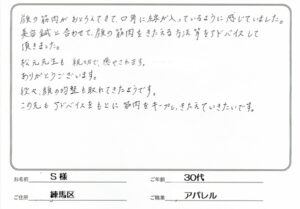 顔の筋肉がおとろえてきて、口角に線が入っているように感じていました。
美容鍼と合わせて、顔の筋肉をきたえる方法等をアドバイスして
頂きました。
松元先生も親切で、癒やされます。
ありがとうございます。
顔の
も取れてきたようです。
この先もアドバイスをもとに筋肉をキープし、きたえていきたいです。
お名前 S 様 ご年齢 30代
ご住所 練馬区 ご職業 アパレル